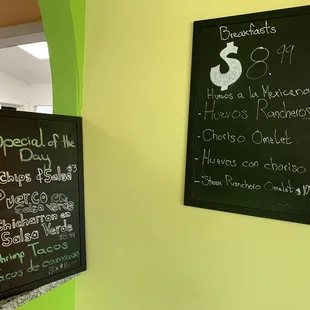 Special of the
Day
Chips & Salsa $3
Puerco en
Salsa verde
Chicharron en
Salsa Verde
$9.99
Shrimp Tacos
Tacos de camaron
3x$10
Breakfasts
$8.99
Huevos a la Mexicana
- Huevos Rancheros
- Choriso Omelet
- Huevos con choriso
- Steak Ranchero Omelet $10